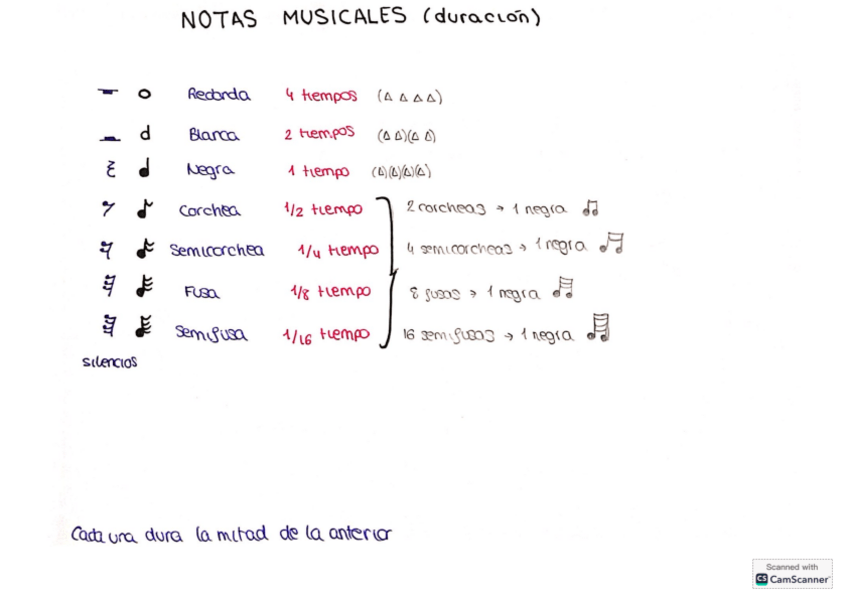 NOTAS MUSICALES (duración)
Redonda 4 tiempos (Δ Δ Δ Δ)
Blanca 2 tiempos (Δ Δ)(Δ Δ)
Negra 1 tiempo (Δ)(Δ)(Δ)(Δ)
Corchea 1/2 tiempo 2 corcheas → 1 negra
Semicorchea 1/4 tiempo 4 semicorcheas → 1 negra
Fusa 1/8 tiempo 8 fusas → 1 negra
Semifusa 1/16 tiempo 16 semifusas → 1 negra
silencios
Cada una dura la mitad de la anterior
Scanned with
CS CamScanner